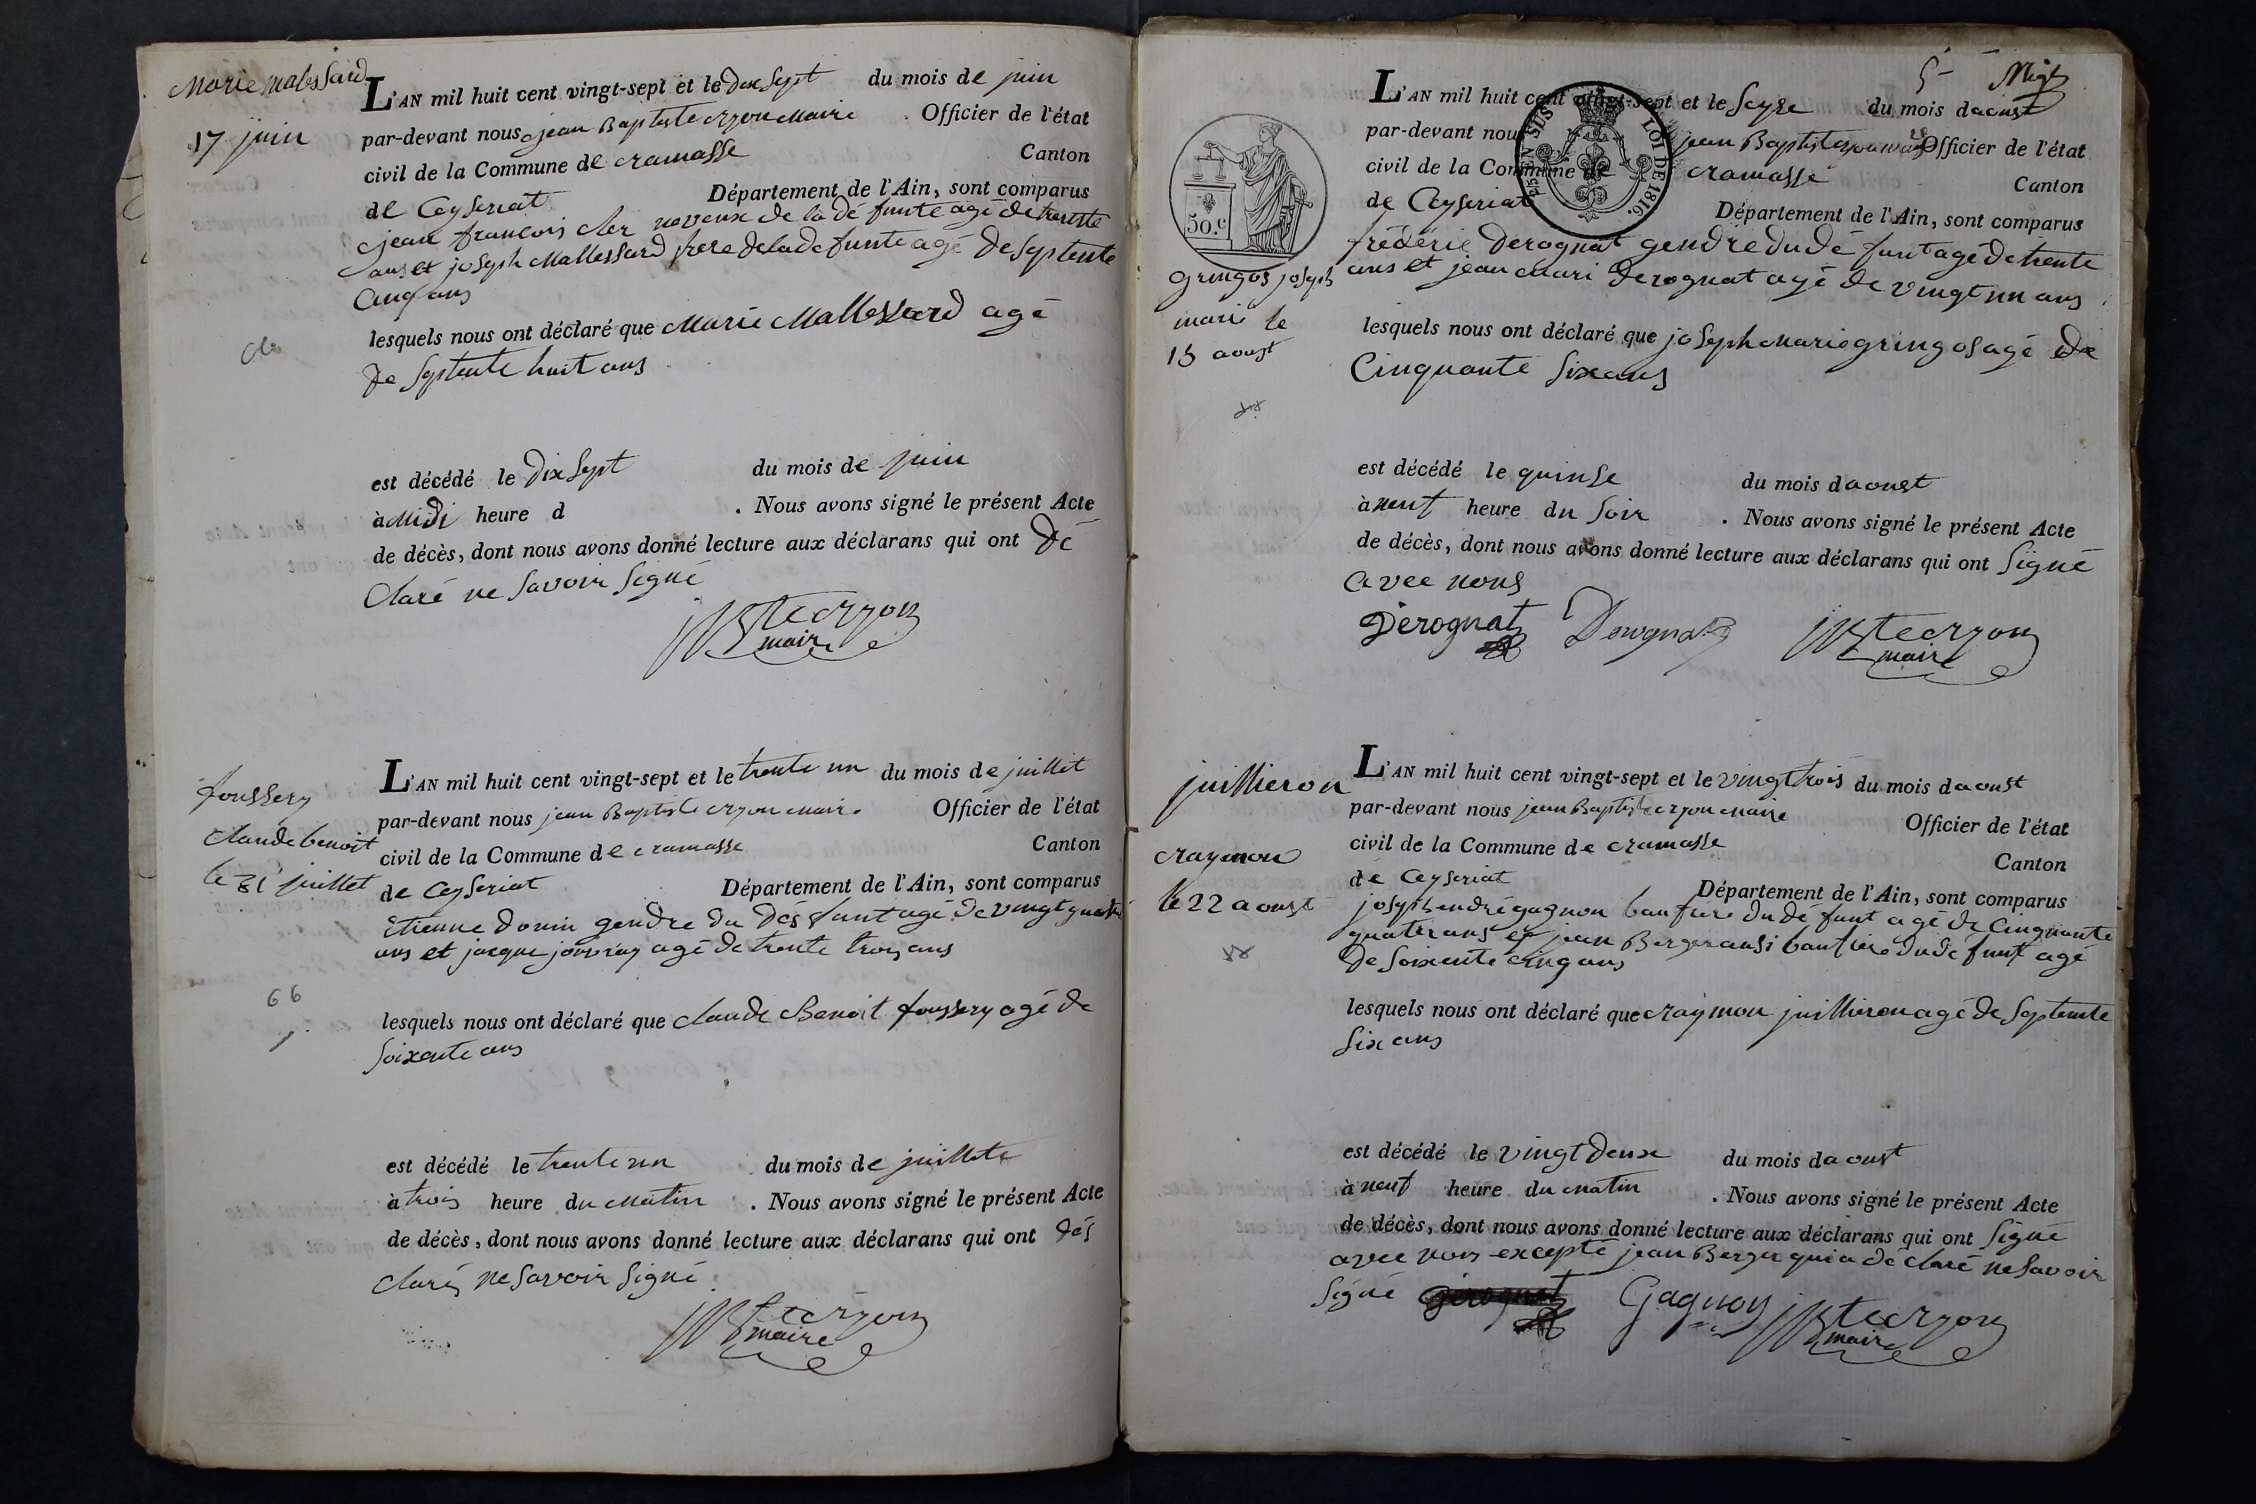 Marie Malessard
17 juin
L'AN mil huit cent vingt-sept et le dix sept du mois de juin
par-devant nous jean Baptiste Maire Officier de l'état
civil de la Commune de cramasse Canton
de Ceyseriat Département de l'Ain, sont comparus
jean francois neveux de la dé funte agé de trente
ans et joseph Mallessard frere de la de funte agé de septente
Cinq ans
lesquels nous ont déclaré que Marie Mallessard agé
de septente huit ans
est décédé le dix sept du mois de juin
à Midi heure d . Nous avons signé le présent Acte
de décès, dont nous avons donné lecture aux déclarans qui ont dé
claré ne savoir signé
maire
foussery
claude benoit
le 31 juillet
66
L'AN mil huit cent vingt-sept et le trente un du mois de juillet
par-devant nous jean Baptiste Maire Officier de l'état
civil de la Commune de cramasse Canton
de Ceyseriat Département de l'Ain, sont comparus
Etienne gendre du dés funt agé de vingt quatre
ans et jacque agé de trente trois ans
lesquels nous ont déclaré que claude Benoit foussery agé de
soixente ans
est décédé le trente un du mois de juillete
à trois heure du Matin . Nous avons signé le présent Acte
de décès, dont nous avons donné lecture aux déclarans qui ont dés
claré ne savoir signé
maire
5
50.c
LOI DE 1816.
gringos joseph
marie le
15 aoust
L'AN mil huit cent vingt-sept et le seyze du mois daoust
par-devant nous jean Baptiste Officier de l'état
civil de la Commune de cramasse Canton
de Ceyseriat Département de l'Ain, sont comparus
frédéric derognat gendre du dé funt agé de trente
ans et jean Mari derognat agé de vingt un ans
lesquels nous ont déclaré que joseph Marie gringos agé de
Cinquante six ans
est décédé le quinse du mois daoust
à neuf heure du soir . Nous avons signé le présent Acte
de décès, dont nous avons donné lecture aux déclarans qui ont signé
avec nous
Derognat Derognat maire
juillieron
craymon
le 22 aoust
L'AN mil huit cent vingt-sept et le vingt trois du mois daoust
par-devant nous jean Baptiste Maire Officier de l'état
civil de la Commune de cramasse Canton
de Ceyseriat Département de l'Ain, sont comparus
joseph endré gagnon baufrere du dé funt agé de Cinquante
quatre ans et jean Berger ausi baufrere du dé funt agé
de soixente cinq ans
lesquels nous ont déclaré que craymon juillieron agé de septente
six ans
est décédé le vingt deux du mois daoust
à neuf heure du matin . Nous avons signé le présent Acte
de décès, dont nous avons donné lecture aux déclarans qui ont signé
avec nous excepté jean Berger qui a dé claré ne savoir
signé Gagnon maire